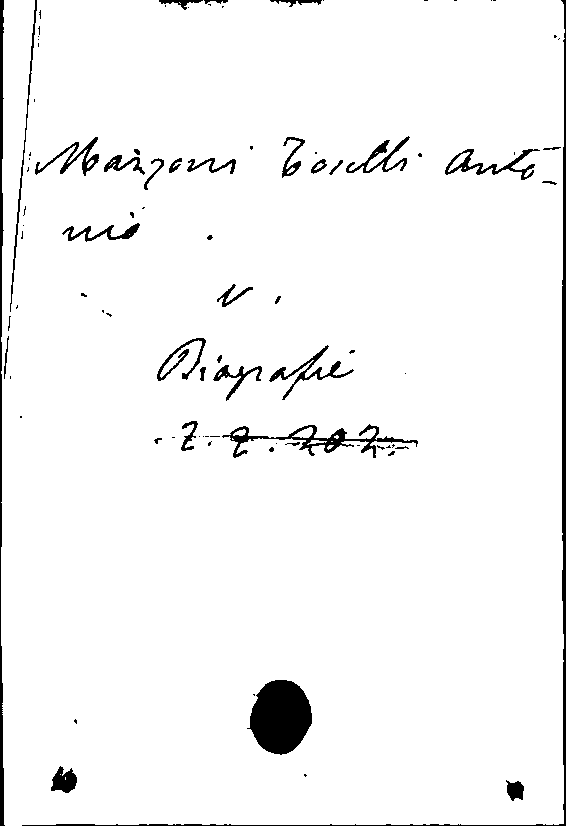 Manzoni Toselli Anto-
nio.
v.
Biografie
Z. Z. 202.